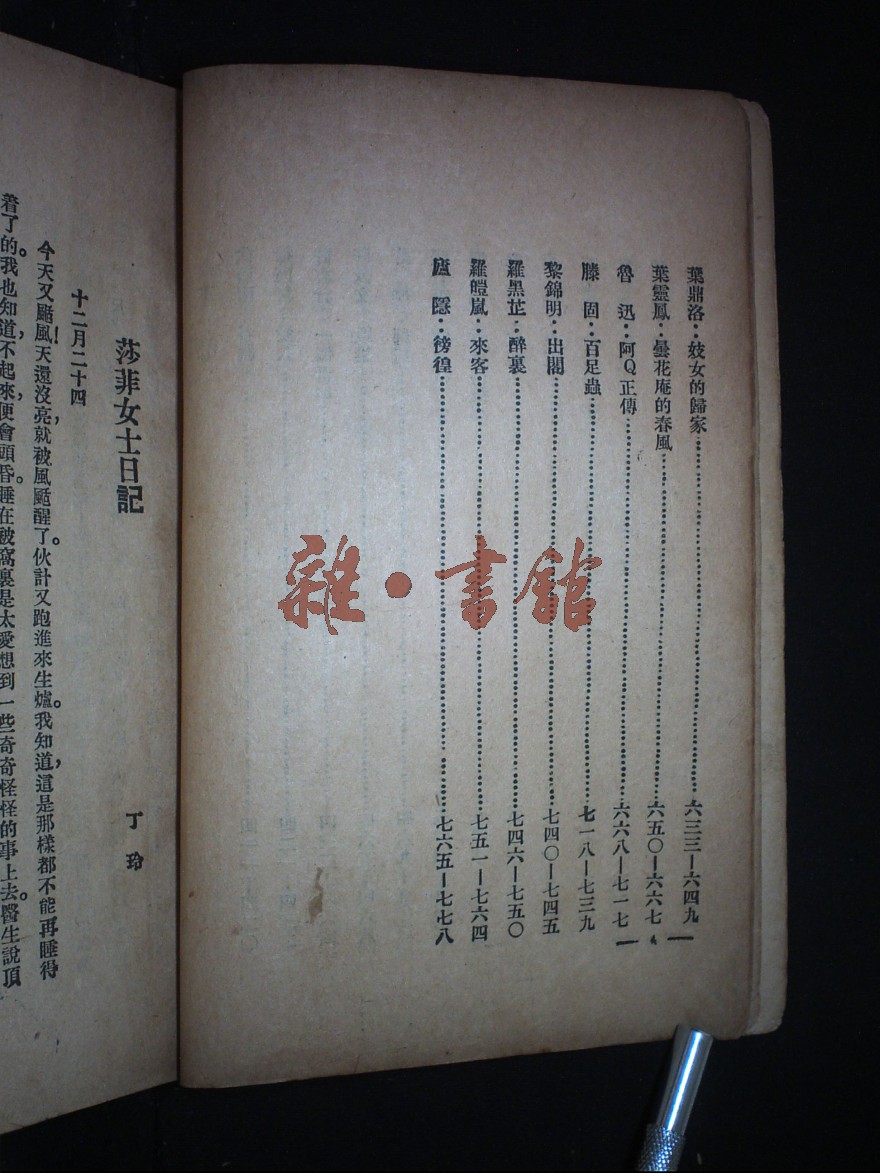 葉鼎洛··妓女的歸家⋯⋯六三三—六四九
葉靈鳳··曇花庵的春風⋯⋯六五〇—六六七
魯　迅··阿Q正傳⋯⋯六六八—七一七
滕　固··百足蟲⋯⋯七一八—七三九
黎錦明··出閣⋯⋯七四〇—七四五
羅黑芷··醉裏⋯⋯七四六—七五〇
羅皚嵐··來客⋯⋯七五一—七六四
廬　隱··徬徨⋯⋯七六五—七七八
雜·書館
莎菲女士日記
丁玲
十二月二十四
今天又颳風！天還沒亮，就被風颳醒了。伙計又跑進來生爐。我知道，這是那樣都不能再睡得
着了的。我也知道，不起來，便會頭昏。睡在被窩裏是太愛想到一些奇奇怪怪的事上去。醫生說頂